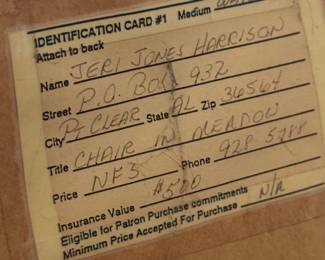 IDENTIFICATION CARD #1 Medium
Attach to back
Name JERI JONES HARRISON
Street P.O. BOX 932
City PT CLEAR State AL Zip 36564
Title CHAIR IN MEADOW
Price NFS Phone 928 5788
Insurance Value $500
Eligible for Patron Purchase commitments N/A
Minimum Price Accepted For Purchase